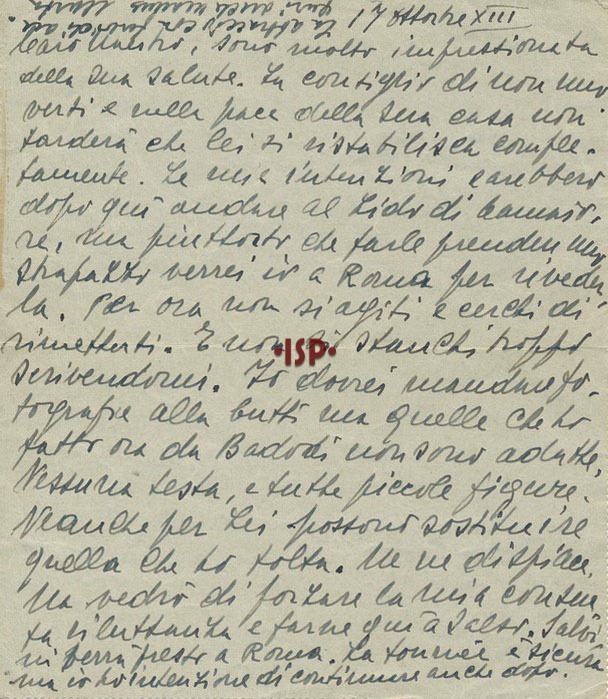 17 Ottobre XIII
Caro Maestro, sono molto impressionata
della sua salute. La consiglio di non muo
verti e nella pace della sua casa non
tarderà che lei si ristabilisca comple-
tamente. Le mie intenzioni sarebbero
dopo qui andare al Lido di Camaio,
re, ma piuttosto che farle prendere uno
strapazzo verrei io a Roma per riveder
la. Per ora non si agiti e cerchi di
rimetterti. E non si stanchi troppo
scrivendomi. Io dovrei mandare fo-
tografie alla Butti ma quelle che ho
fatto ora da Badodi non sono adatte,
Nessuna testa, e tutte piccole figure.
Neanche per Lei possono sostituire
quella che ho tolta. Me ne dispiace,
Ma vedrò di forzare la mia contin
ta riluttanza e farne qui a Salso. Salvi
ni verrà presto a Roma. La tournée è sicura
ma io ho intenzione di continuare anche dopo.
·ISP·